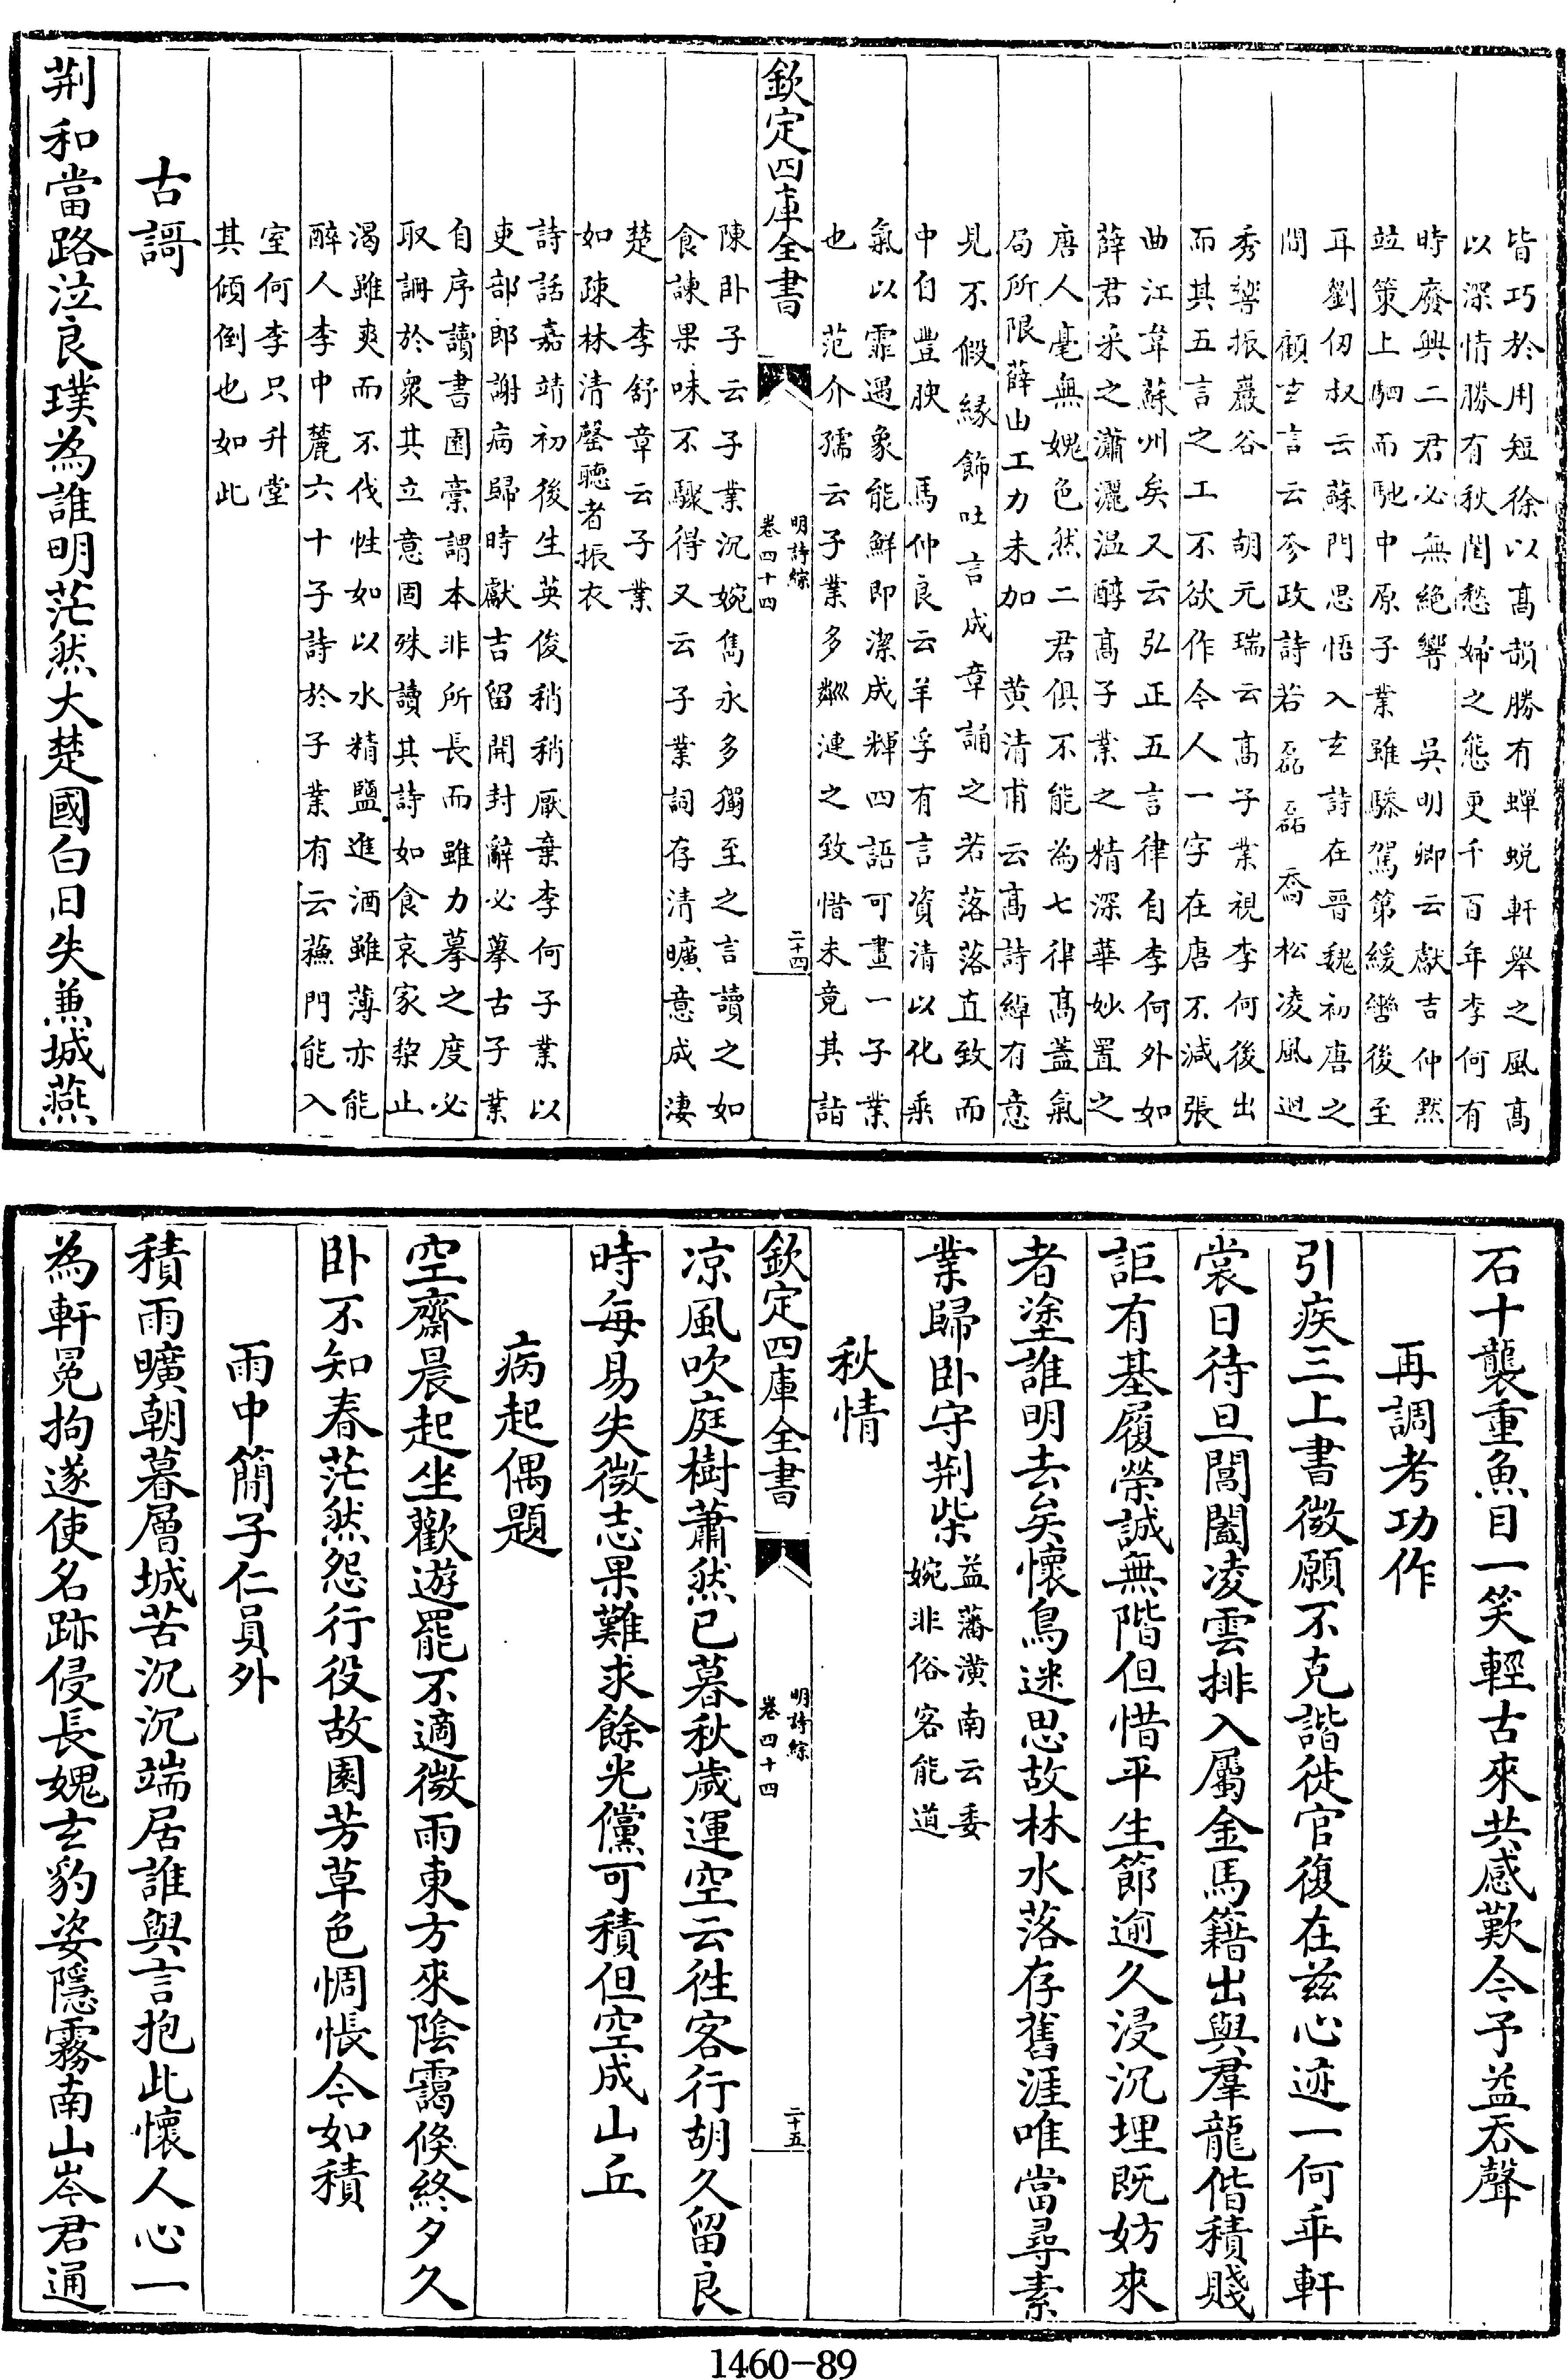 皆巧於用短徐以高韻勝有蟬蛻軒舉之風高
以深情勝有秋閨愁婦之態更千百年李何有
時廢興二君必無絶響　吳明卿云獻吉仲黙
竝策上駟而馳中原子業雖驂駕第緩轡後至
耳劉仞叔云蘇門思悟入玄詩在晉魏初唐之
間　顧玄言云叅政詩若磊磊喬松凌風迥
秀響振巖谷　胡元瑞云高子業視李何後出
而其五言之工不欲作今人一字在唐不減張
曲江韋蘇州矣又云弘正五言律自李何外如
薛君采之瀟灑温醇高子業之精深華妙置之
唐人毫無媿色然二君俱不能為七律高蓋氣
局所限薛山工力未加　黄清甫云高詩綽有意
見不假緣飾吐言成章誦之若落落直致而
中自豐腴　馬仲良云羊孚有言資清以化乘
氣以霏遇象能鮮即潔成輝四語可盡一子業
也　范介孺云子業多粼漣之致惜未竟其詣
欽定四庫全書
明詩綜
卷四十四
二十四
陳卧子云子業沉婉雋永多獨至之言讀之如
食諫果味不驟得又云子業詞存清曠意成凄
楚　李舒章云子業
如疎林清磬聽者振衣
詩話嘉靖初後生英俊稍稍厭棄李何子業以
吏部郎謝病歸時獻吉留開封辭必摹古子業
自序讀書園稾謂本非所長而雖力摹之度必
取訕於衆其立意固殊讀其詩如食哀家棃止
渴雖爽而不伐性如以水精鹽進酒雖薄亦能
醉人李中麓六十子詩於子業有云蘓門能入
室何李只升堂
其傾倒也如此
古謌
荆和當路泣良璞為誰明茫然大楚國白日失兼城燕
石十襲重魚目一笑輕古來共感歎今予益吞聲
再調考功作
引疾三上書微願不克諧徙官復在兹心迹一何乖軒
裳日待旦閶闔凌雲排入屬金馬籍出與羣龍偕積賤
詎有基履榮誠無階但惜平生節逾久浸沉埋既妨來
者塗誰明去矣懷鳥迷思故林水落存舊涯唯當尋素
業歸卧守荆柴
益藩潢南云委
婉非俗客能道
秋情
欽定四庫全書
明詩綜
卷四十四
二十五
凉風吹庭樹蕭然已暮秋歲運空云徃客行胡久留良
時每易失微志果難求餘光儻可積但空成山丘
病起偶題
空齋晨起坐歡遊罷不適微雨東方來陰靄倐終夕久
卧不知春茫然怨行役故園芳草色惆悵今如積
雨中簡子仁員外
積雨曠朝暮層城苦沉沉端居誰與言抱此懷人心一
為軒冕拘遂使名跡侵長媿玄豹姿隱霧南山岑君通
1460-89